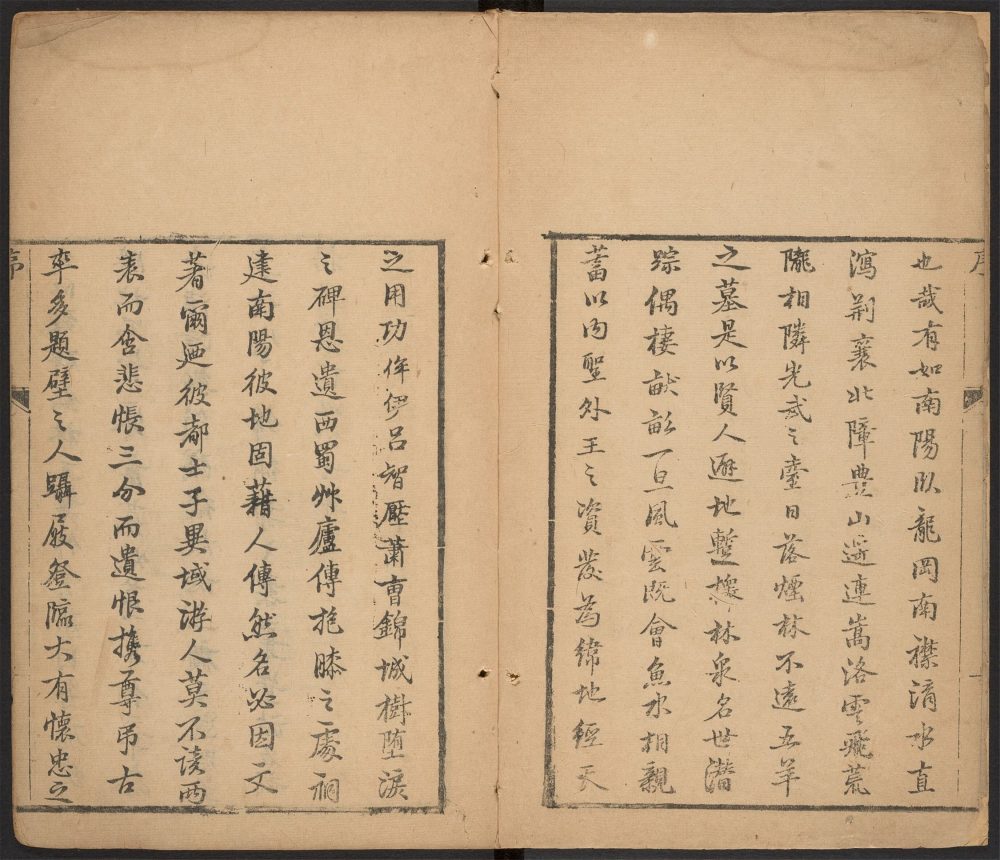 序
一
也哉有如南陽臥龍岡南襟淯水直
瀉荆襄北障豊山遥連嵩洛雲飛荒
隴相隣光武之臺日落煙林不遠五羊
之墓是以賢人避地蹔棲林泉名世潛
踪偶棲畎畝一旦風雲既會魚水相親
蓄以内聖外王之資發為緯地經天
之用功侔伊呂智壓蕭曹錦城樹墮淚
之碑恩遺西蜀艸廬傳抱膝之處祠
建南陽彼地固藉人傳然名必因文
著爾廼彼都士子異域游人莫不讀兩
表而含悲悵三分而遺恨携尊弔古
率多題壁之人躡屐登臨大有懷忠之
序